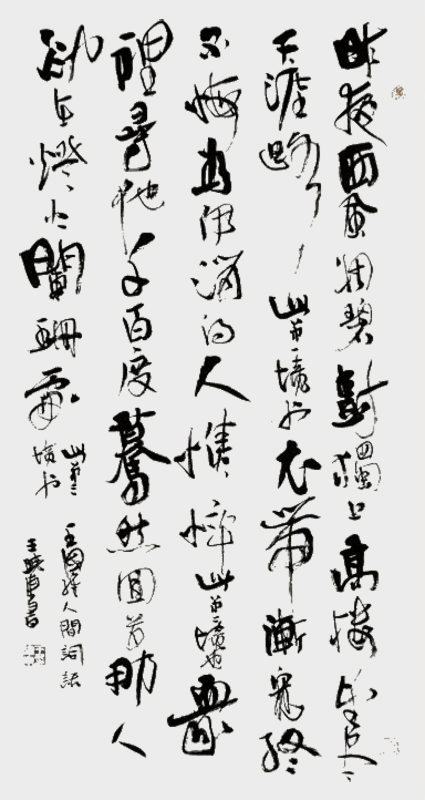 昨夜西風凋碧樹獨上高樓望盡
天涯路此第一境也衣帶漸寬終
不悔為伊消得人憔悴此第二境也眾
裡尋他千百度驀然回首那人
却在燈火闌珊處此第三
境也
王國維人間詞話